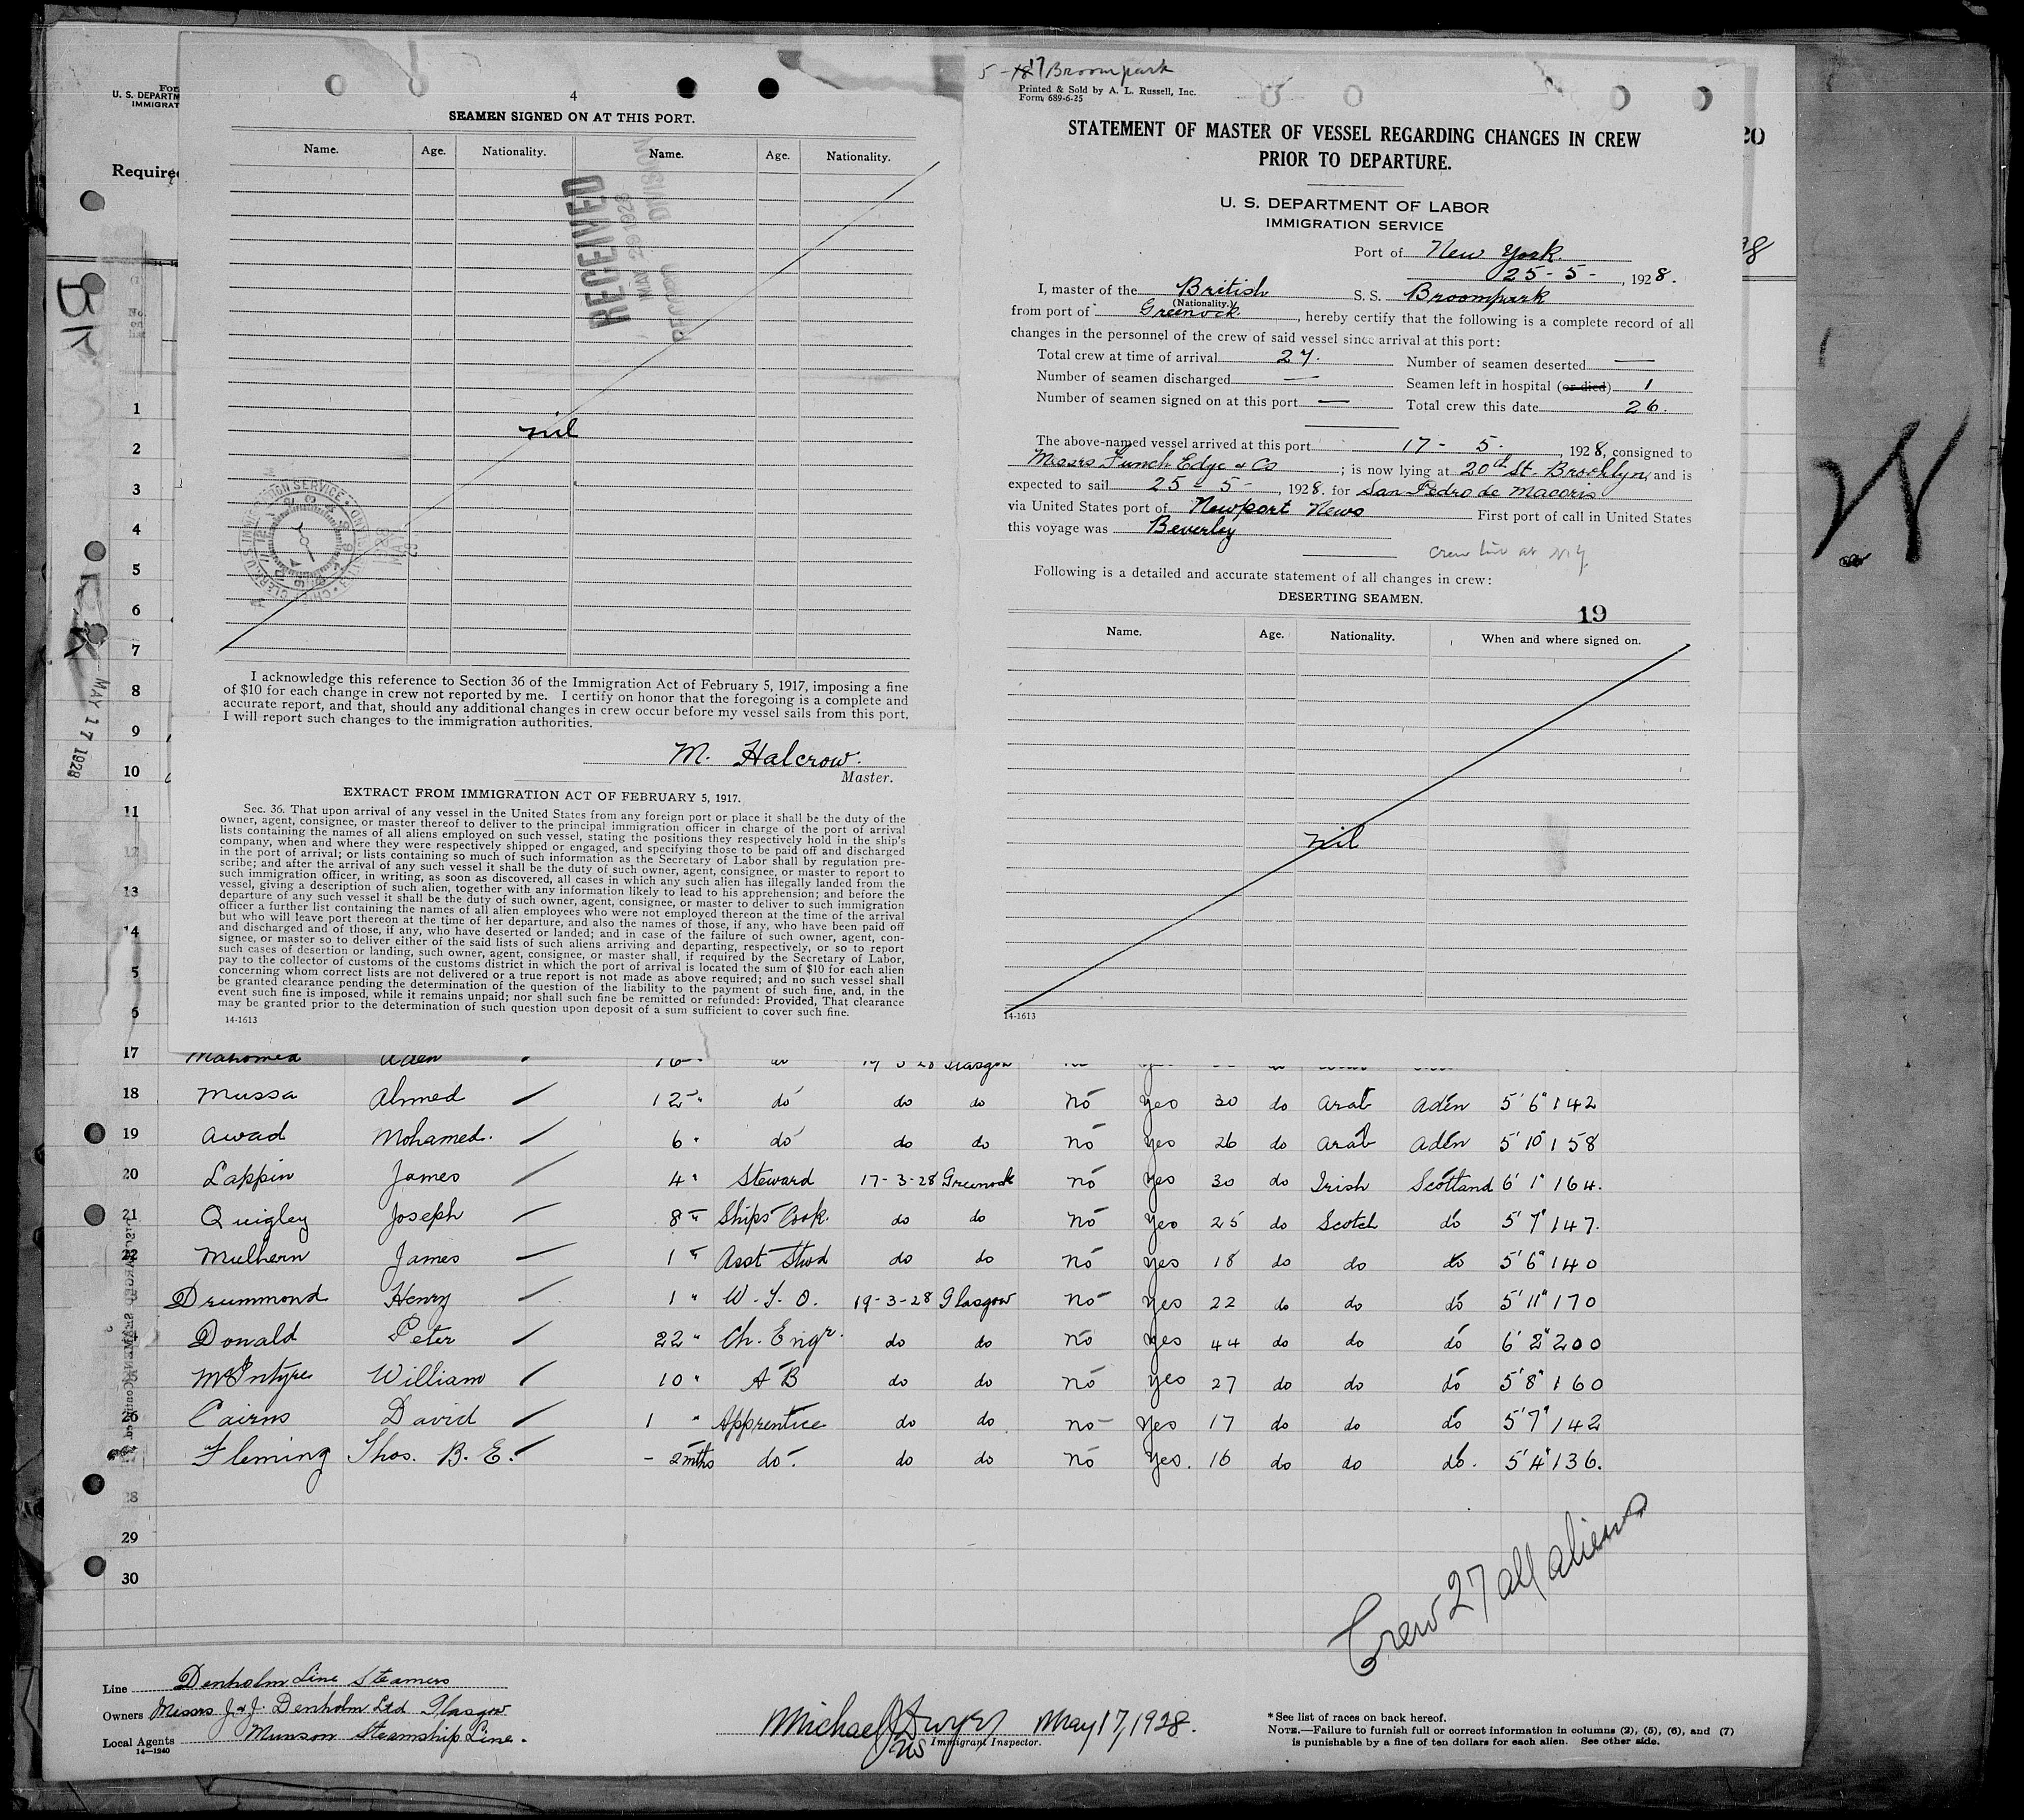 For
U. S. DEPARTM
IMMIGRAT
Require
BR
MAY 17 1928
4
SEAMEN SIGNED ON AT THIS PORT.
Name. Age. Nationality. Name. Age. Nationality.
RECEIVED
MAY 29 1928
DIVISION
nil
I acknowledge this reference to Section 36 of the Immigration Act of February 5, 1917, imposing a fine
of $10 for each change in crew not reported by me. I certify on honor that the foregoing is a complete and
accurate report, and that, should any additional changes in crew occur before my vessel sails from this port,
I will report such changes to the immigration authorities.
M. Halcrow.
Master.
EXTRACT FROM IMMIGRATION ACT OF FEBRUARY 5, 1917.
Sec. 36. That upon arrival of any vessel in the United States from any foreign port or place it shall be the duty of the
owner, agent, consignee, or master thereof to deliver to the principal immigration officer in charge of the port of arrival
lists containing the names of all aliens employed on such vessel, stating the positions they respectively hold in the ship's
company, when and where they were respectively shipped or engaged, and specifying those to be paid off and discharged
in the port of arrival; or lists containing so much of such information as the Secretary of Labor shall by regulation pre-
scribe; and after the arrival of any such vessel it shall be the duty of such owner, agent, consignee, or master to report to
such immigration officer, in writing, as soon as discovered, all cases in which any such alien has illegally landed from the
vessel, giving a description of such alien, together with any information likely to lead to his apprehension; and before the
departure of any such vessel it shall be the duty of such owner, agent, consignee, or master to deliver to such immigration
officer a further list containing the names of all alien employees who were not employed thereon at the time of the arrival
but who will leave port thereon at the time of her departure, and also the names of those, if any, who have been paid off
and discharged and of those, if any, who have deserted or landed; and in case of the failure of such owner, agent, con-
signee, or master so to deliver either of the said lists of such aliens arriving and departing, respectively, or so to report
such cases of desertion or landing, such owner, agent, consignee, or master shall, if required by the Secretary of Labor,
pay to the collector of customs of the customs district in which the port of arrival is located the sum of $10 for each alien
concerning whom correct lists are not delivered or a true report is not made as above required; and no such vessel shall
be granted clearance pending the determination of the question of the liability to the payment of such fine, and, in the
event such fine is imposed, while it remains unpaid; nor shall such fine be remitted or refunded: Provided, That clearance
may be granted prior to the determination of such question upon deposit of a sum sufficient to cover such fine.
14-1613
5 - 17 Broompark
Printed & Sold by A. L. Russell, Inc.
Form 689-6-25
STATEMENT OF MASTER OF VESSEL REGARDING CHANGES IN CREW
PRIOR TO DEPARTURE.
U. S. DEPARTMENT OF LABOR
IMMIGRATION SERVICE
Port of New York
25-5-, 1928.
I, master of the British S. S. Broompark
(Nationality.)
from port of Greenock, hereby certify that the following is a complete record of all
changes in the personnel of the crew of said vessel since arrival at this port:
Total crew at time of arrival 27. Number of seamen deserted —
Number of seamen discharged — Seamen left in hospital (or died) 1
Number of seamen signed on at this port — Total crew this date 26.
The above-named vessel arrived at this port 17 - 5 -, 1928, consigned to
Messrs Funch Edye & Co; is now lying at 20th St. Brooklyn, and is
expected to sail 25 - 5 -, 1928. for San Pedro de Macoris
via United States port of Newport News First port of call in United States
this voyage was Beverley
Crew list at N.Y.
Following is a detailed and accurate statement of all changes in crew:
DESERTING SEAMEN.
19
Name. Age. Nationality. When and where signed on.
nil
14-1613
20
W
1
2
3
4
5
6
7
8
9
10
11
12
13
14
5
6
17 Mahomed Aden 16 " do 19-3-28 Glasgow
18 Mussa Ahmed 12 " do do do no yes 30 do Arab Aden 5' 6" 142
19 Awad Mohamed. 6 " do do do no yes 26 do Arab Aden 5' 10" 158
20 Lappin James 4 " Steward 17-3-28 Greenock no yes 30 do Irish Scotland 6' 1" 164.
21 Quigley Joseph 8 " Ships Cook. do do no yes 25 do Scotch do 5' 7" 147.
22 Mulhern James 1 " Asst Stwd do do no yes 18 do do do 5' 6" 140
3 Drummond Henry 1 " W. T. O. 19-3-28 Glasgow no yes 22 do do do 5' 11" 170
4 Donald Peter 22 " Ch. Engr. do do no yes 44 do do do 6' 2" 200
5 McIntyre William 10 " A B do do no yes 27 do do do 5' 8" 160
26 Cairns David 1 " Apprentice do do no yes 17 do do do 5' 7" 142
Fleming Thos. B. E. - 2 mths do. do do no yes. 16 do do do. 5' 4" 136.
28
29
30
Crew 27 all aliens
Line Denholm Line Steamers
Owners Messrs J & J. Denholm Ltd Glasgow
Local Agents Munson Steamship Line.
14—1240
Michael J Dwyer May 17, 1928.
Immigrant Inspector.
* See list of races on back hereof.
NOTE.—Failure to furnish full or correct information in columns (2), (5), (6), and (7)
is punishable by a fine of ten dollars for each alien. See other side.